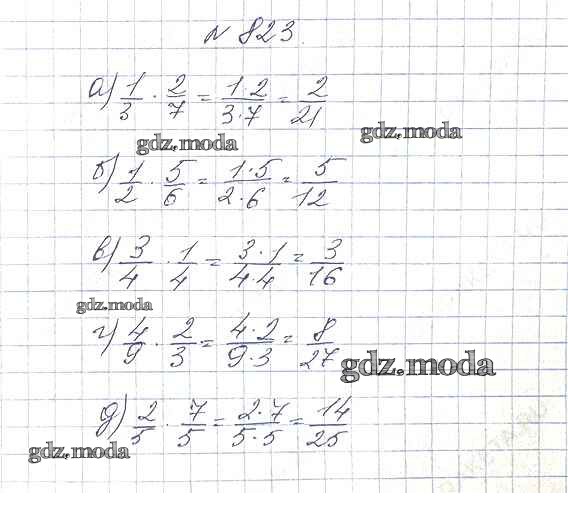 № 823.
а) 1/3 · 2/7 = 1·2/3·7 = 2/21
gdz.moda
gdz.moda
б) 1/2 · 5/6 = 1·5/2·6 = 5/12
в) 3/4 · 1/4 = 3·1/4·4 = 3/16
gdz.moda
г) 4/9 · 2/3 = 4·2/9·3 = 8/27
gdz.moda
д) 2/5 · 7/5 = 2·7/5·5 = 14/25
gdz.moda